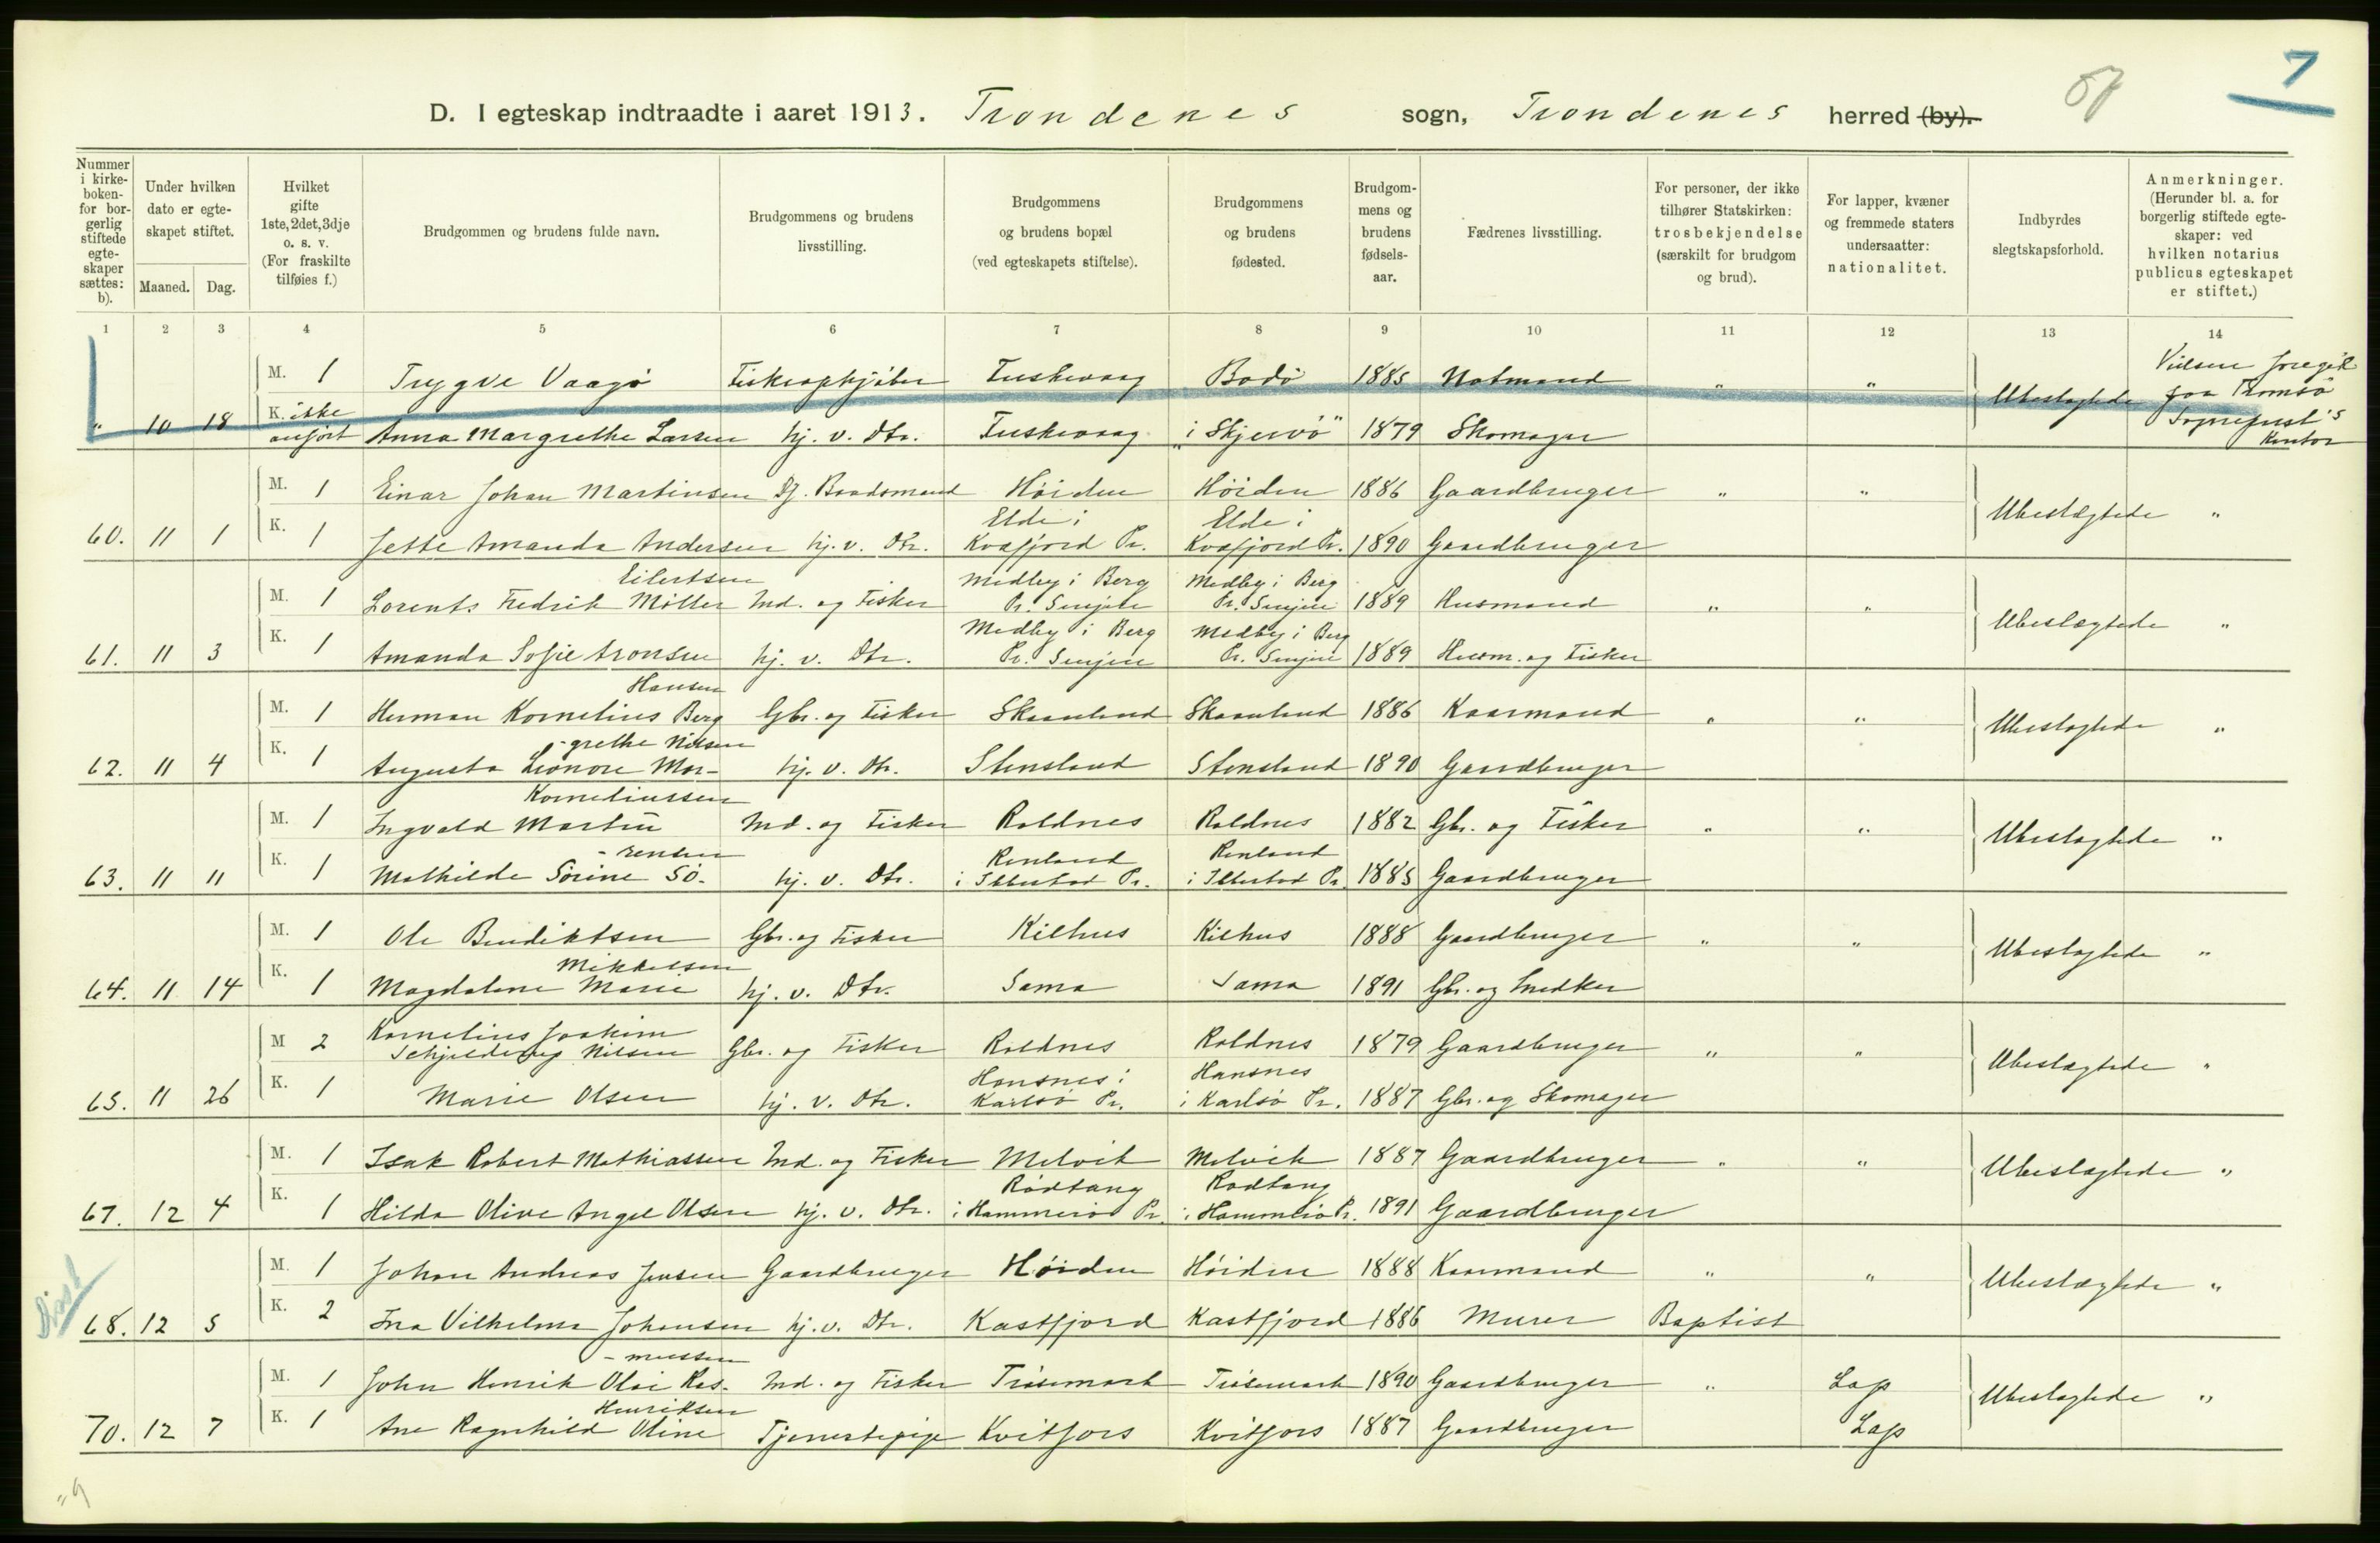 7
57
D. I egteskap indtraadte i aaret 1913. Trondenes sogn, Trondenes herred (by).
Nummer i kirke-boken- for bor-gerlig stiftede egte-skaper sættes: b).
Under hvilken dato er egte-skapet stiftet.
Maaned. Dag.
Hvilket gifte 1ste, 2det, 3dje o. s. v. (For fraskilte tilføies f.)
Brudgommen og brudens fulde navn.
Brudgommens og brudens livsstilling.
Brudgommens og brudens bopæl (ved egteskapets stiftelse).
Brudgommens og brudens fødested.
Brudgom-mens og brudens fødsels-aar.
Fædrenes livsstilling.
For personer, der ikke tilhører Statskirken: trosbekjendelse (særskilt for brudgom og brud).
For lapper, kvæner og fremmede staters undersaatter: nationalitet.
Indbyrdes slegtskapsforhold.
Anmerkninger. (Herunder bl. a. for borgerlig stiftede egte-skaper: ved hvilken notarius publicus egteskapet er stiftet.)
1 2 3 4 5 6 7 8 9 10 11 12 13 14
M. 1 Trygve Vaagø Fiskeopkjøber Tuskevaag Bodø 1885 Notmand " " Ubeslægtede Vielsen foregik paa Tromsø Sogneprest's Kontor
" 10 18 K. ikke anført Anna Margrethe Larsen hj. v. Dtr. Tuskevaag i "Skjervø" 1879 Skomager
M. 1 Einar Johan Martinsen Dj. Baadsmand Høiden Høiden 1886 Gaardbruger " " Ubeslægtede "
60. 11 1 K. 1 Jette Amanda Andersen hj. v. Dtr. Elde i Kvæfjord Pr. Elde i Kvæfjord Pr. 1890 Gaardbruger
M. 1 Lorents Fredrik Möller Eilertsen Ind. og Fisker Medby i Berg Pr. Senjen Medby i Berg Pr. Senjen 1889 Husmand " " Ubeslægtede "
61. 11 3 K. 1 Amanda Sofie Aronsen hj. v. Dtr. Medby i Berg Pr. Senjen Medby i Berg Pr. Senjen 1889 Husm. og Fisker
M. 1 Herman Kornelius Berg Hansen Gbr. og Fisker Skaanland Skaanland 1886 Kaarmand " " Ubeslægtede "
62. 11 4 K. 1 Augusta Leonore Mar-grethe Nilsen hj. v. Dtr. Stensland Stensland 1890 Gaardbruger
M. 1 Ingvald Martin Korneliussen Ind. og Fisker Roldnes Roldnes 1882 Gbr. og Fisker " " Ubeslægtede "
63. 11 11 K. 1 Mathilde Sörine Sö-rensen hj. v. Dtr. Renland i Ibbestad Pr. Renland i Ibbestad Pr. 1885 Gaardbruger
M. 1 Ole Bendiktsen Gbr. og Fisker Kilhus Kilhus 1888 Gaardbruger " " Ubeslægtede "
64. 11 14 K. 1 Magdalene Marie Mikkelsen hj. v. Dtr. Sama Sama 1891 Gbr. og Snedker
M 2 Kornelius Joakim Schjelderup Nilsen Gbr. og Fisker Roldnes Roldnes 1879 Gaardbruger " " Ubeslægtede "
65. 11 26 K. 1 Marie Olsen hj. v. Dtr. Hansnes i Karlsø Pr. Hansnes i Karlsø Pr. 1887 Gbr. og Skomager
M. 1 Isak Robert Mathiassen Ind. og Fisker Melvik Melvik 1887 Gaardbruger " " Ubeslægtede "
67. 12 4 K. 1 Hilda Olive Angel Olsen hj. v. Dtr. Rødtang i Hammerø Pr. Rødtang i Hammerø Pr. 1891 Gaardbruger
M. 1 Johan Andreas Jensen Gaardbruger Høiden Høiden 1888 Kaarmand " " Ubeslægtede "
Diss!
68. 12 5 K. 2 Ina Vilhelma Johansen hj. v. Dtr. Kastfjord Kastfjord 1886 Murer Baptist
M. 1 John Henrik Olai Ras-mussen Ind. og Fisker Trøsemark Trøsemark 1890 Gaardbruger " Lap Ubeslægtede "
70. 12 7 K. 1 Ane Ragnhild Oline Henriksen Tjenestepige Kvitfors Kvitfors 1887 Gaardbruger Lap
"9